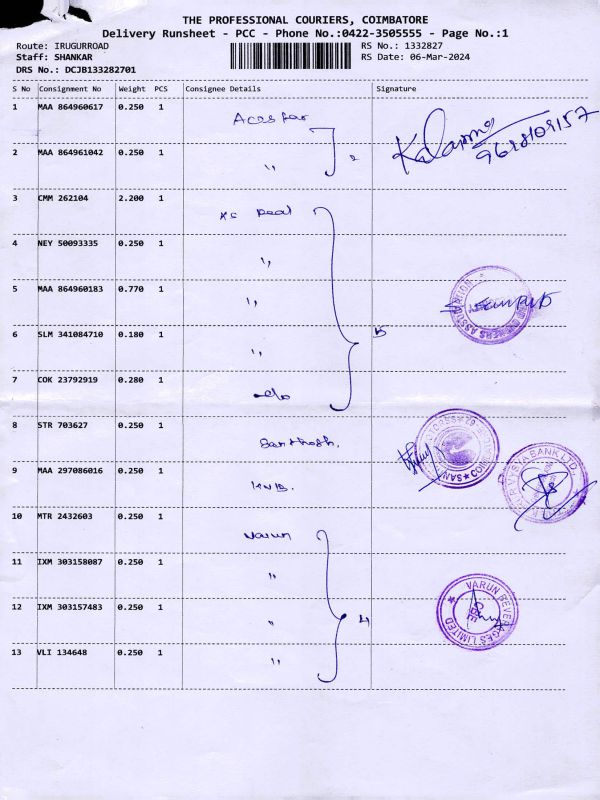 THE PROFESSIONAL COURIERS, COIMBATORE
Delivery Runsheet - PCC - Phone No.:0422-3505555 - Page No.:1
Route: IRUGURROAD
RS No.: 1332827
Staff: SHANKAR
RS Date: 06-Mar-2024
DRS No.: DCJB133282701
S No Consignment No Weight PCS Consignee Details Signature
1 MAA 864960617 0.250 1
2 MAA 864961042 0.250 1 ,, 2
3 CMM 262104 2.200 1
4 NEY 50093335 0.250 1 ,,
5 MAA 864960183 0.770 1 ,,
6 SLM 341084710 0.180 1 ,, 5
7 COK 23792919 0.280 1 do
8 STR 703627 0.250 1 Santhosh.
9 MAA 297086016 0.250 1 KVB.
10 MTR 2432603 0.250 1 Varun
11 IXM 303158087 0.250 1 ,,
12 IXM 303157483 0.250 1 ,, 4
VARUN BEVERAGES LIMITED
CBE
13 VLI 134648 0.250 1 ,,